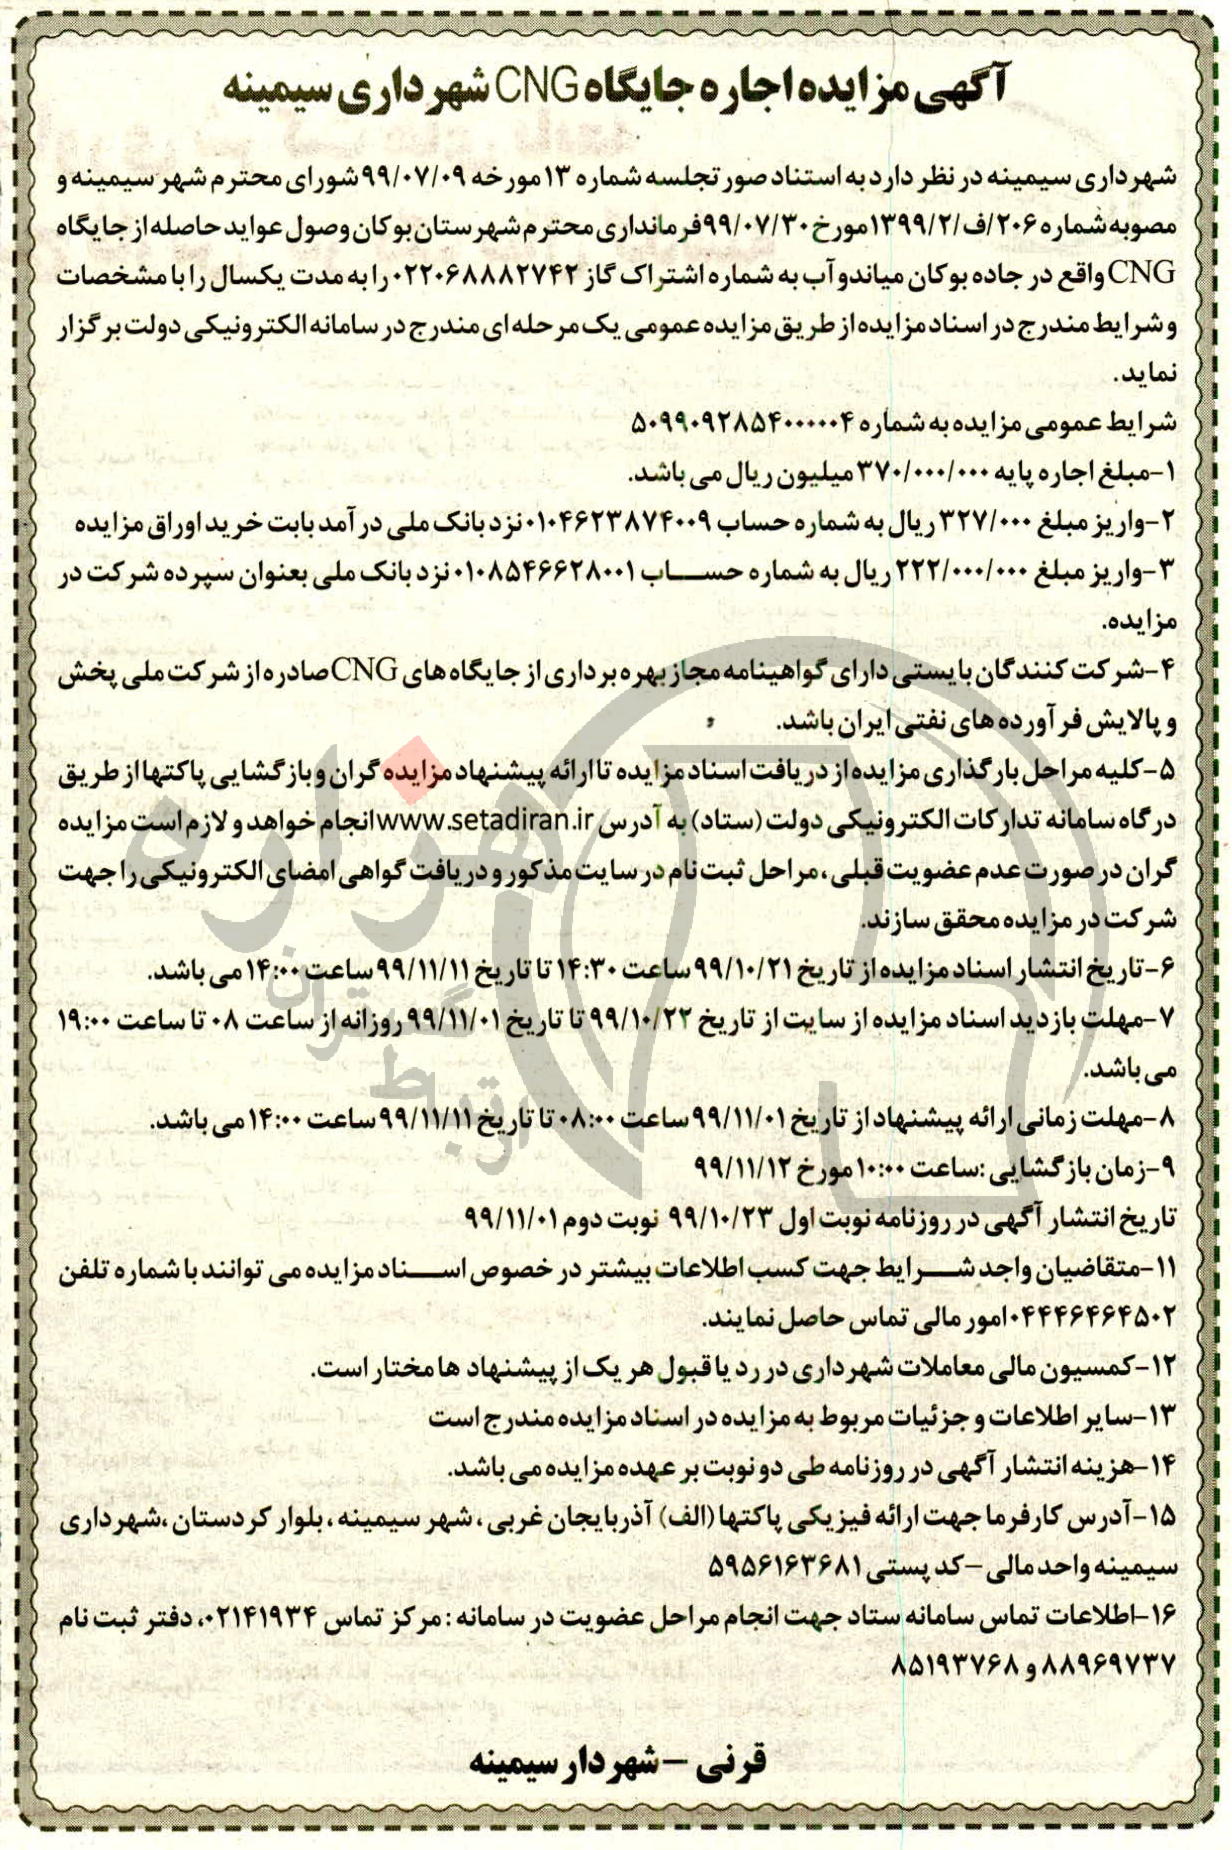 آگهی مزایده اجاره جایگاه CNG شهرداری سیمینه
شهرداری سیمینه در نظر دارد به استناد صورتجلسه شماره ۱۳ مورخه ۹۹/۰۷/۰۹ شورای محترم شهر سیمینه و
مصوبه شماره ۲۰۶/ف/۱۳۹۹/۲ مورخ ۹۹/۰۷/۳۰ فرمانداری محترم شهرستان بوکان وصول عواید حاصله از جایگاه
CNG واقع در جاده بوکان میاندوآب به شماره اشتراک گاز ۰۲۲۰۶۸۸۸۲۷۴۲ را به مدت یکسال را با مشخصات
و شرایط مندرج در اسناد مزایده از طریق مزایده عمومی یک مرحله ای مندرج در سامانه الکترونیکی دولت برگزار
نماید.
شرایط عمومی مزایده به شماره ۵۰۹۹۰۹۲۸۵۴۰۰۰۰۰۴
۱-مبلغ اجاره پایه ۳۷۰/۰۰۰/۰۰۰ میلیون ریال می باشد.
۲-واریز مبلغ ۳۲۷/۰۰۰ ریال به شماره حساب ۰۱۰۴۶۲۳۸۷۴۰۰۹ نزد بانک ملی درآمد بابت خرید اوراق مزایده
۳-واریز مبلغ ۲۲۲/۰۰۰/۰۰۰ ریال به شماره حساب ۰۱۰۸۵۴۶۶۲۸۰۰۱ نزد بانک ملی بعنوان سپرده شرکت در
مزایده.
۴-شرکت کنندگان بایستی دارای گواهینامه مجاز بهره برداری از جایگاه های CNG صادره از شرکت ملی پخش
و پالایش فرآورده های نفتی ایران باشد.
۵-کلیه مراحل بارگذاری مزایده از دریافت اسناد مزایده تا ارائه پیشنهاد مزایده گران و بازگشایی پاکتها از طریق
درگاه سامانه تدارکات الکترونیکی دولت (ستاد) به آدرس www.setadiran.ir انجام خواهد و لازم است مزایده
گران در صورت عدم عضویت قبلی، مراحل ثبت نام در سایت مذکور و دریافت گواهی امضای الکترونیکی را جهت
شرکت در مزایده محقق سازند.
۶-تاریخ انتشار اسناد مزایده از تاریخ ۹۹/۱۰/۲۱ ساعت ۱۴:۳۰ تا تاریخ ۹۹/۱۱/۱۱ ساعت ۱۴:۰۰ می باشد.
۷-مهلت بازدید اسناد مزایده از سایت از تاریخ ۹۹/۱۰/۲۳ تا تاریخ ۹۹/۱۱/۰۱ روزانه از ساعت ۰۸ تا ساعت ۱۹:۰۰
می باشد.
۸-مهلت زمانی ارائه پیشنهاد از تاریخ ۹۹/۱۱/۰۱ ساعت ۰۸:۰۰ تا تاریخ ۹۹/۱۱/۱۱ ساعت ۱۴:۰۰ می باشد.
۹-زمان بازگشایی :ساعت ۱۰:۰۰ مورخ ۹۹/۱۱/۱۲
تاریخ انتشار آگهی در روزنامه نوبت اول ۹۹/۱۰/۲۳ نوبت دوم ۹۹/۱۱/۰۱
۱۱-متقاضیان واجد شرایط جهت کسب اطلاعات بیشتر در خصوص اسناد مزایده می توانند با شماره تلفن
۰۴۴۴۶۴۶۴۵۰۲ امور مالی تماس حاصل نمایند.
۱۲-کمسیون مالی معاملات شهرداری در رد یا قبول هر یک از پیشنهاد ها مختار است.
۱۳-سایر اطلاعات و جزئیات مربوط به مزایده در اسناد مزایده مندرج است
۱۴-هزینه انتشار آگهی در روزنامه طی دو نوبت بر عهده مزایده می باشد.
۱۵-آدرس کارفرما جهت ارائه فیزیکی پاکتها (الف) آذربایجان غربی، شهر سیمینه، بلوار کردستان، شهرداری
سیمینه واحد مالی -کد پستی ۵۹۵۶۱۶۳۶۸۱
۱۶-اطلاعات تماس سامانه ستاد جهت انجام مراحل عضویت در سامانه : مرکز تماس ۰۲۱۴۱۹۳۴، دفتر ثبت نام
۸۸۹۶۹۷۳۷ و ۸۵۱۹۳۷۶۸
قرنی - شهردار سیمینه
هزاره
ارتباط گستران